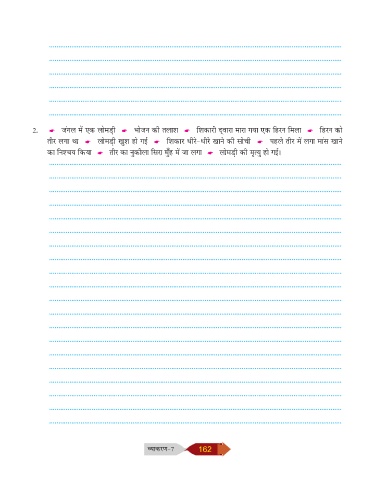 2. ☛ जंगल में एक लोमड़ी ☛ भोजन की तलाश ☛ शिकारी द्वारा मारा गया एक हिरन मिला ☛ हिरन को
तीर लगा था ☛ लोमड़ी खुश हो गई ☛ शिकार धीरे-धीरे खाने की सोची ☛ पहले तीर में लगा मांस खाने
का निश्चय किया ☛ तीर का नुकीला सिरा मुँह में जा लगा ☛ लोमड़ी की मृत्यु हो गई।
व्याकरण-7 162